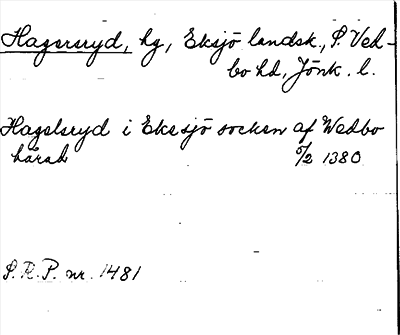 Hagsryd, hg, Eksjö landsk., S. Ved-
bo hd, Jönk. l.
Hagelsryd i Eksjö socken af Wedbo
härad 5/2 1380
S.R.P. nr. 1481